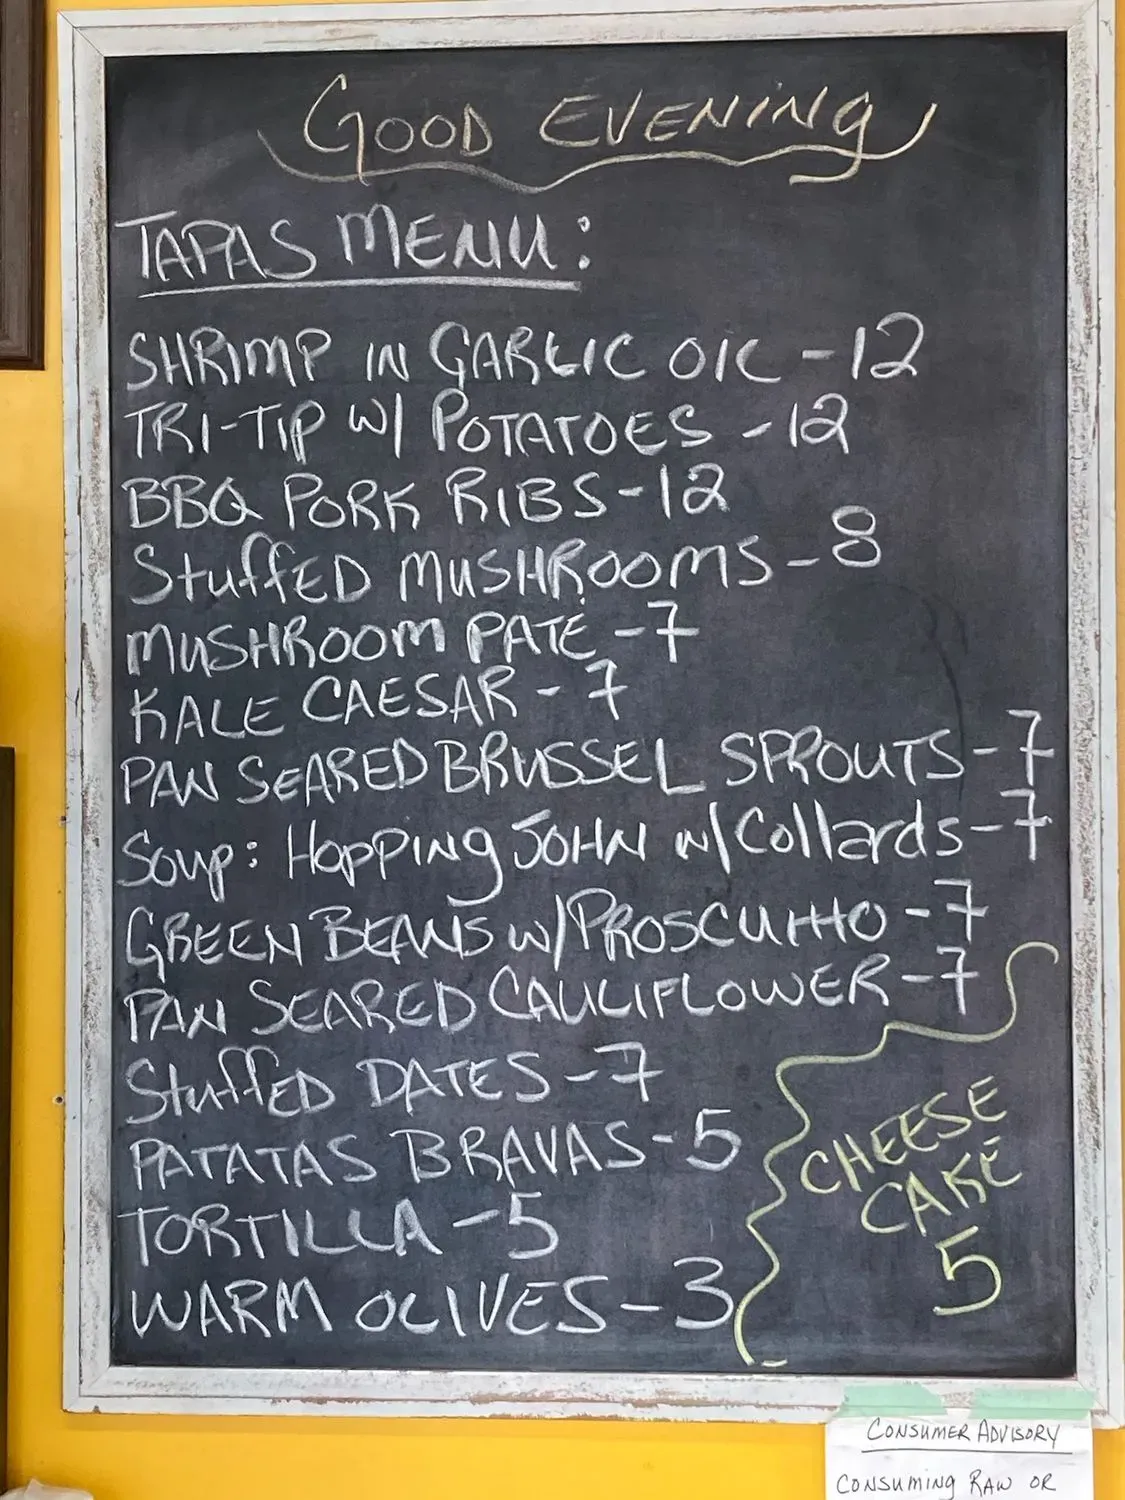 GOOD EVENING
TAPAS MENU:
SHRIMP IN GARLIC OIL - 12
TRI-TIP W/ POTATOES - 12
BBQ PORK RIBS - 12
StuffED MUSHROOMS - 8
MUSHROOM PATE - 7
KALE CAESAR - 7
PAN SEARED BRUSSEL SPROUTS - 7
Soup: HOPPING JOHN w/ Collards - 7
GREEN BEANS w/ PROSCUITTO - 7
PAN SEARED CAULIFLOWER - 7
StuffED DATES - 7
PATATAS BRAVAS - 5
TORTILLA - 5
WARM OLIVES - 3
CHEESE
CAKE
5
CONSUMER ADVISORY
CONSUMING RAW OR